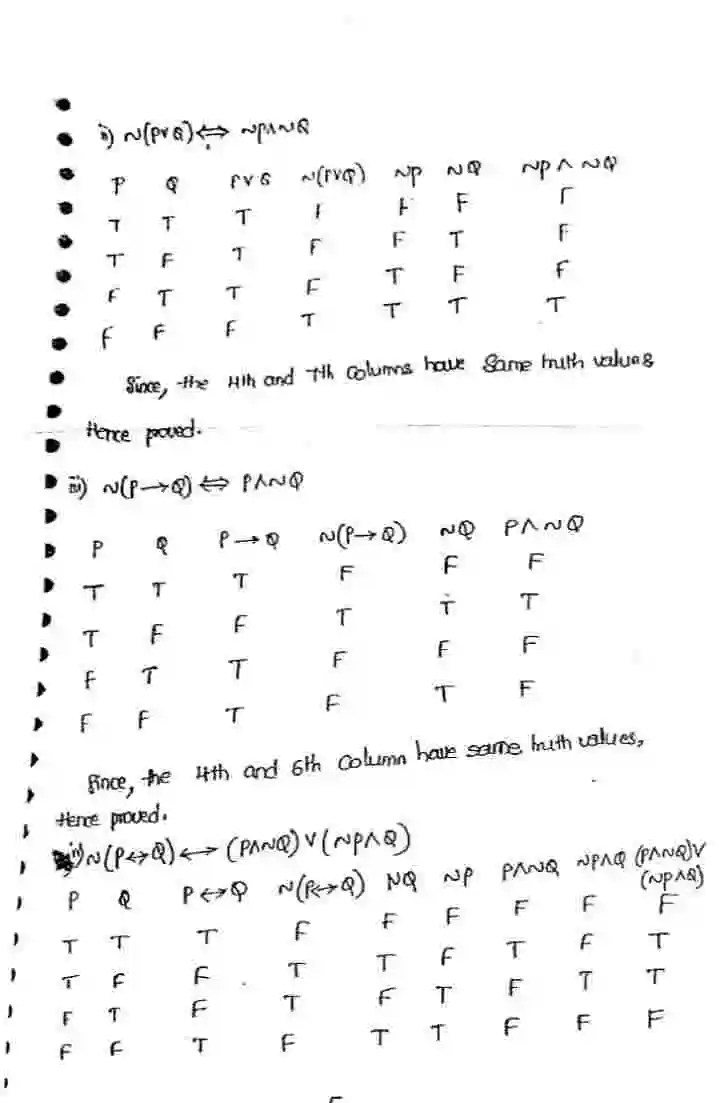 ii) ~(P∨Q)⇔ ~P∧~Q
P Q P∨Q ~(P∨Q) ~P ~Q ~P∧~Q
T T T F F F F
T F T F F T F
F T T F T F F
F F F T T T T
Since, the 4th and 7th columns have same truth values
Hence proved.
iii) ~(P→Q) ⇔ P∧~Q
P Q P→Q ~(P→Q) ~Q P∧~Q
T T T F F F
T F F T T T
F T T F F F
F F T F T F
Since, the 4th and 6th column have same truth values,
Hence proved.
iv) ~(P↔Q) ↔ (P∧~Q)∨(~P∧Q)
P Q P↔Q ~(P↔Q) ~Q ~P P∧~Q ~P∧Q (P∧~Q)∨
(~P∧Q)
T T T F F F F F F
T F F T T F T F T
F T F T F T F T T
F F T F T T F F F